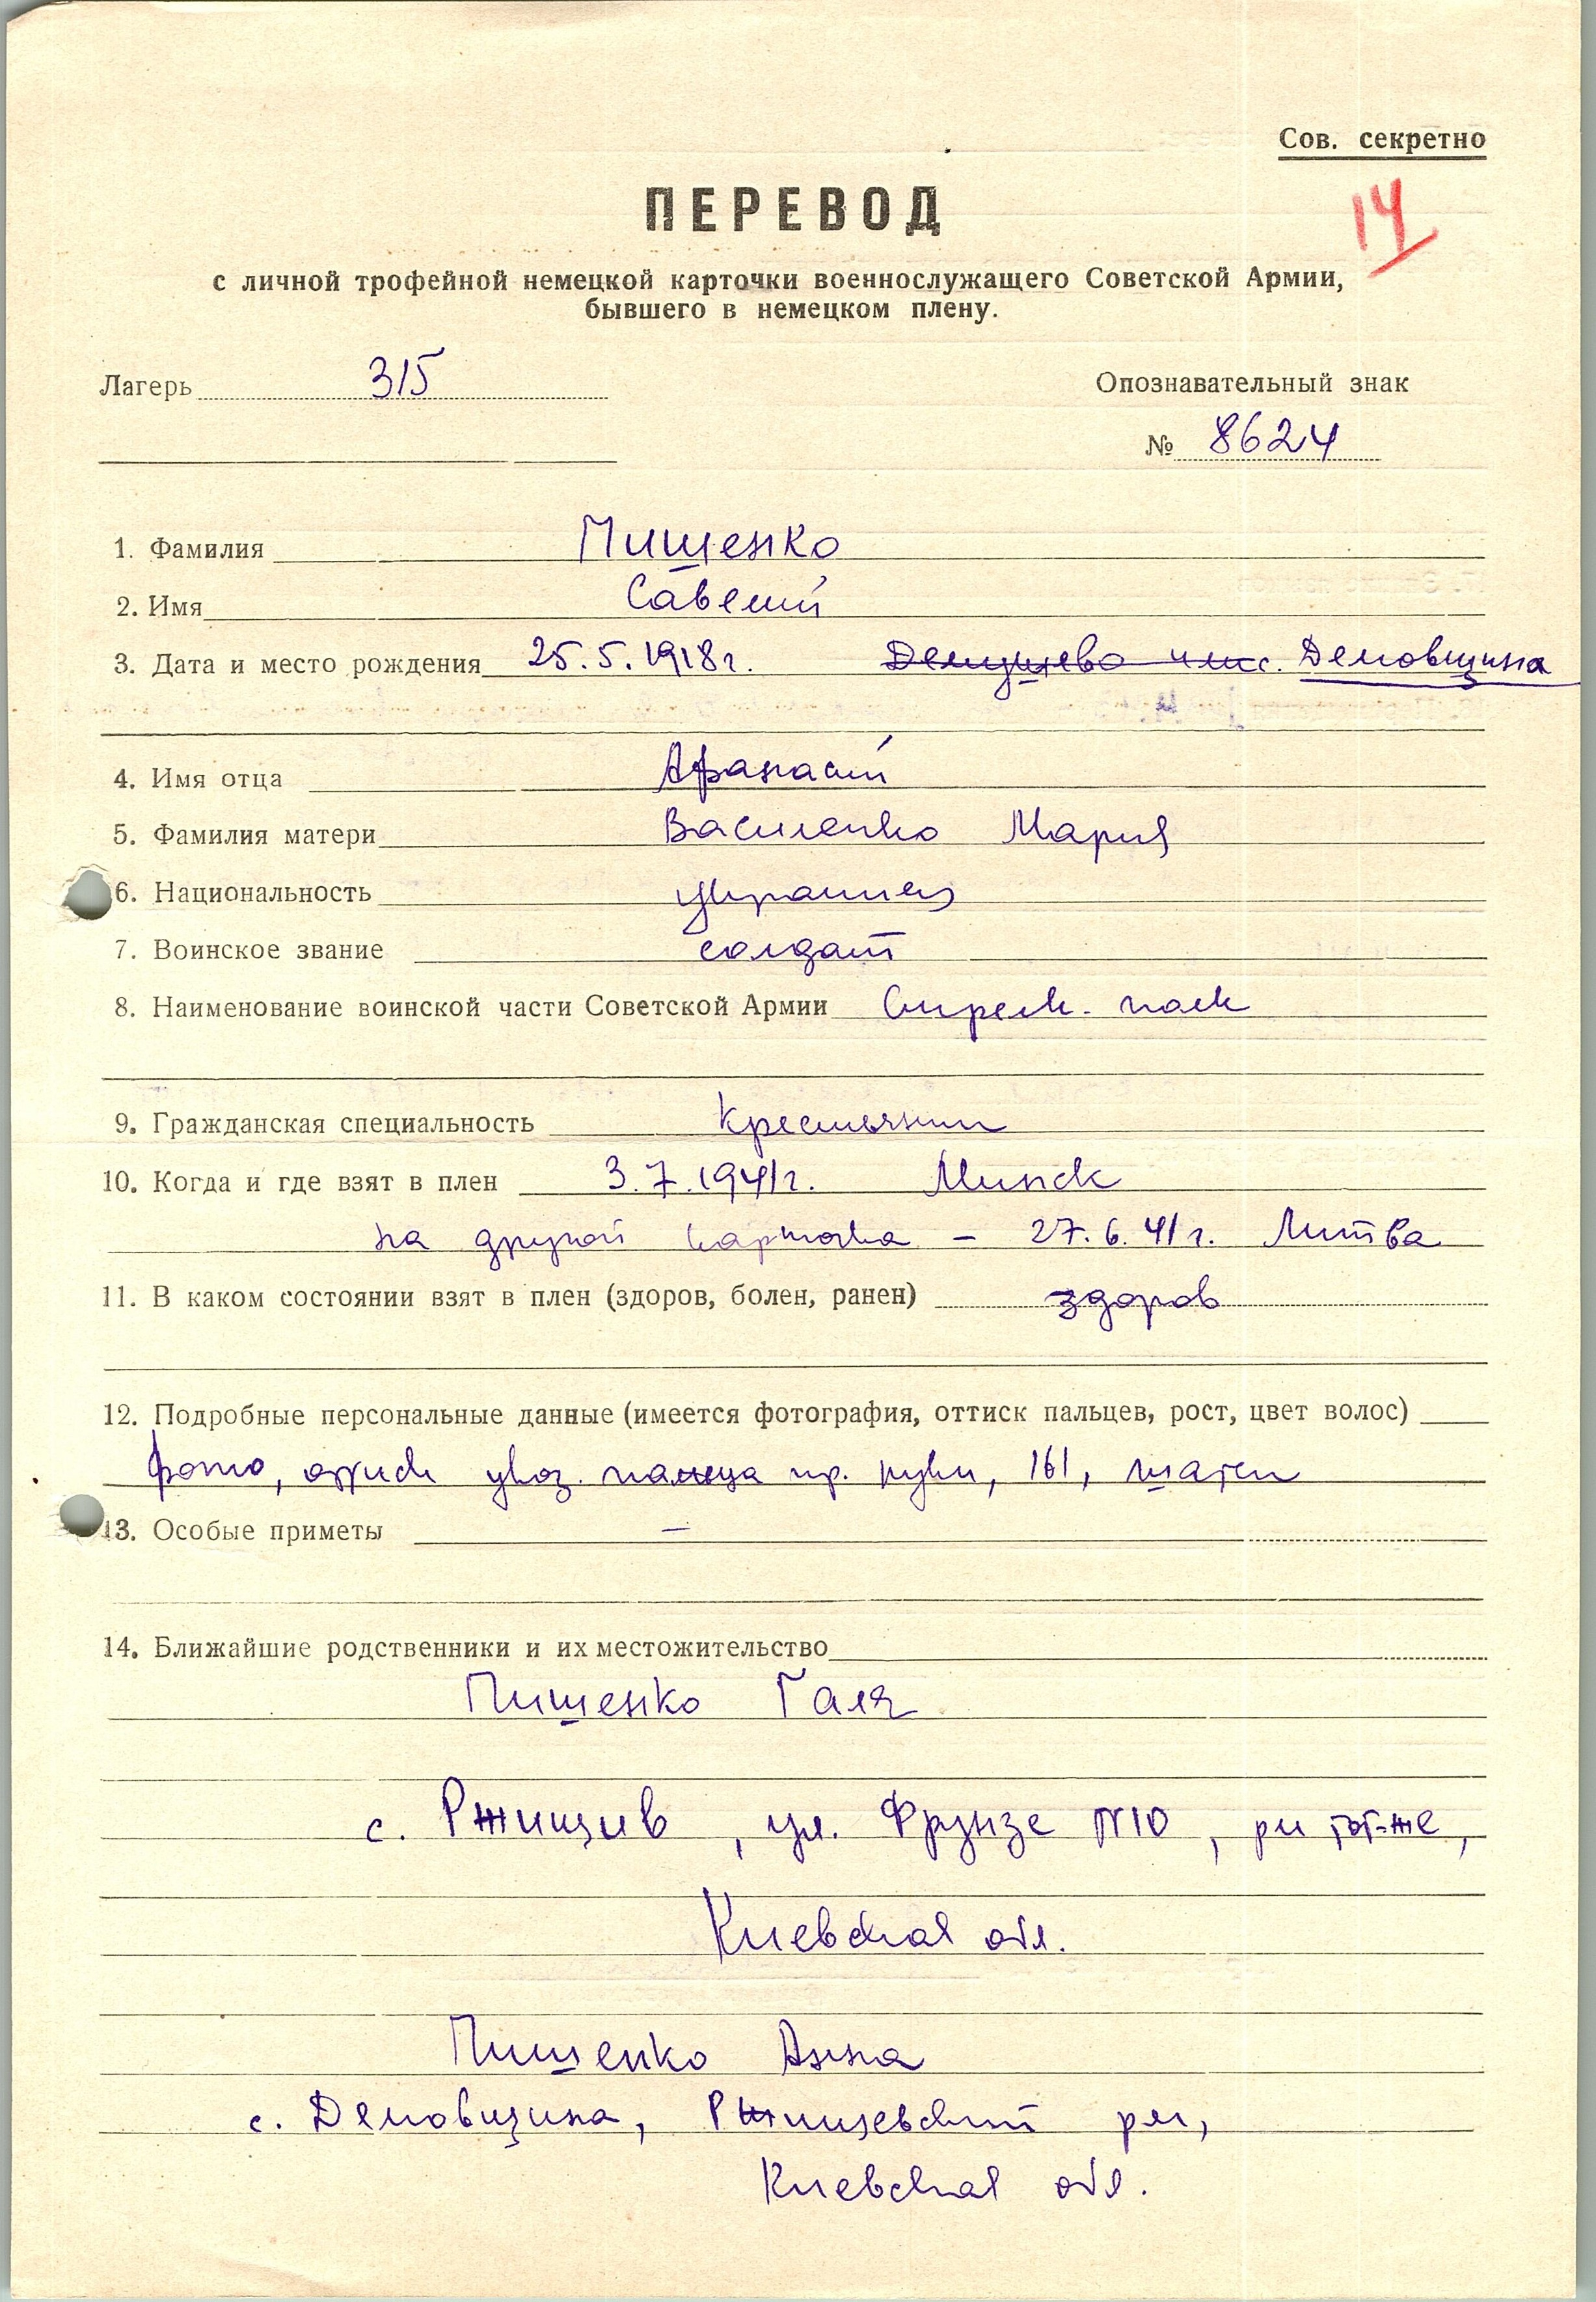 Сов. секретно
ПЕРЕВОД
14
с личной трофейной немецкой карточки военнослужащего Советской Армии,
бывшего в немецком плену.
Лагерь 315
Опознавательный знак
№ 8624
1. Фамилия Пищенко
2. Имя Савелий
3. Дата и место рождения 25.5.1918 г. с. Демовщина
4. Имя отца Афанасий
5. Фамилия матери Василенко Мария
6. Национальность украинец
7. Воинское звание солдат
8. Наименование воинской части Советской Армии Стрелк. полк
9. Гражданская специальность Крестьянин
10. Когда и где взят в плен 3.7.1941г. Минск
на другой карточке – 27.6.41г. Литва
11. В каком состоянии взят в плен (здоров, болен, ранен) здоров
12. Подробные персональные данные (имеется фотография, оттиск пальцев, рост, цвет волос)
фото, оттиск указ. пальца пр. руки, 161, шатен
13. Особые приметы –
14. Ближайшие родственники и их местожительство
Пищенко Галя
с. Ржищив, ул. Фрунзе №10, рн тот-же,
Киевская обл.
Пищенко Анна
с. Демовщина, Ржищевский рн,
Киевская обл.